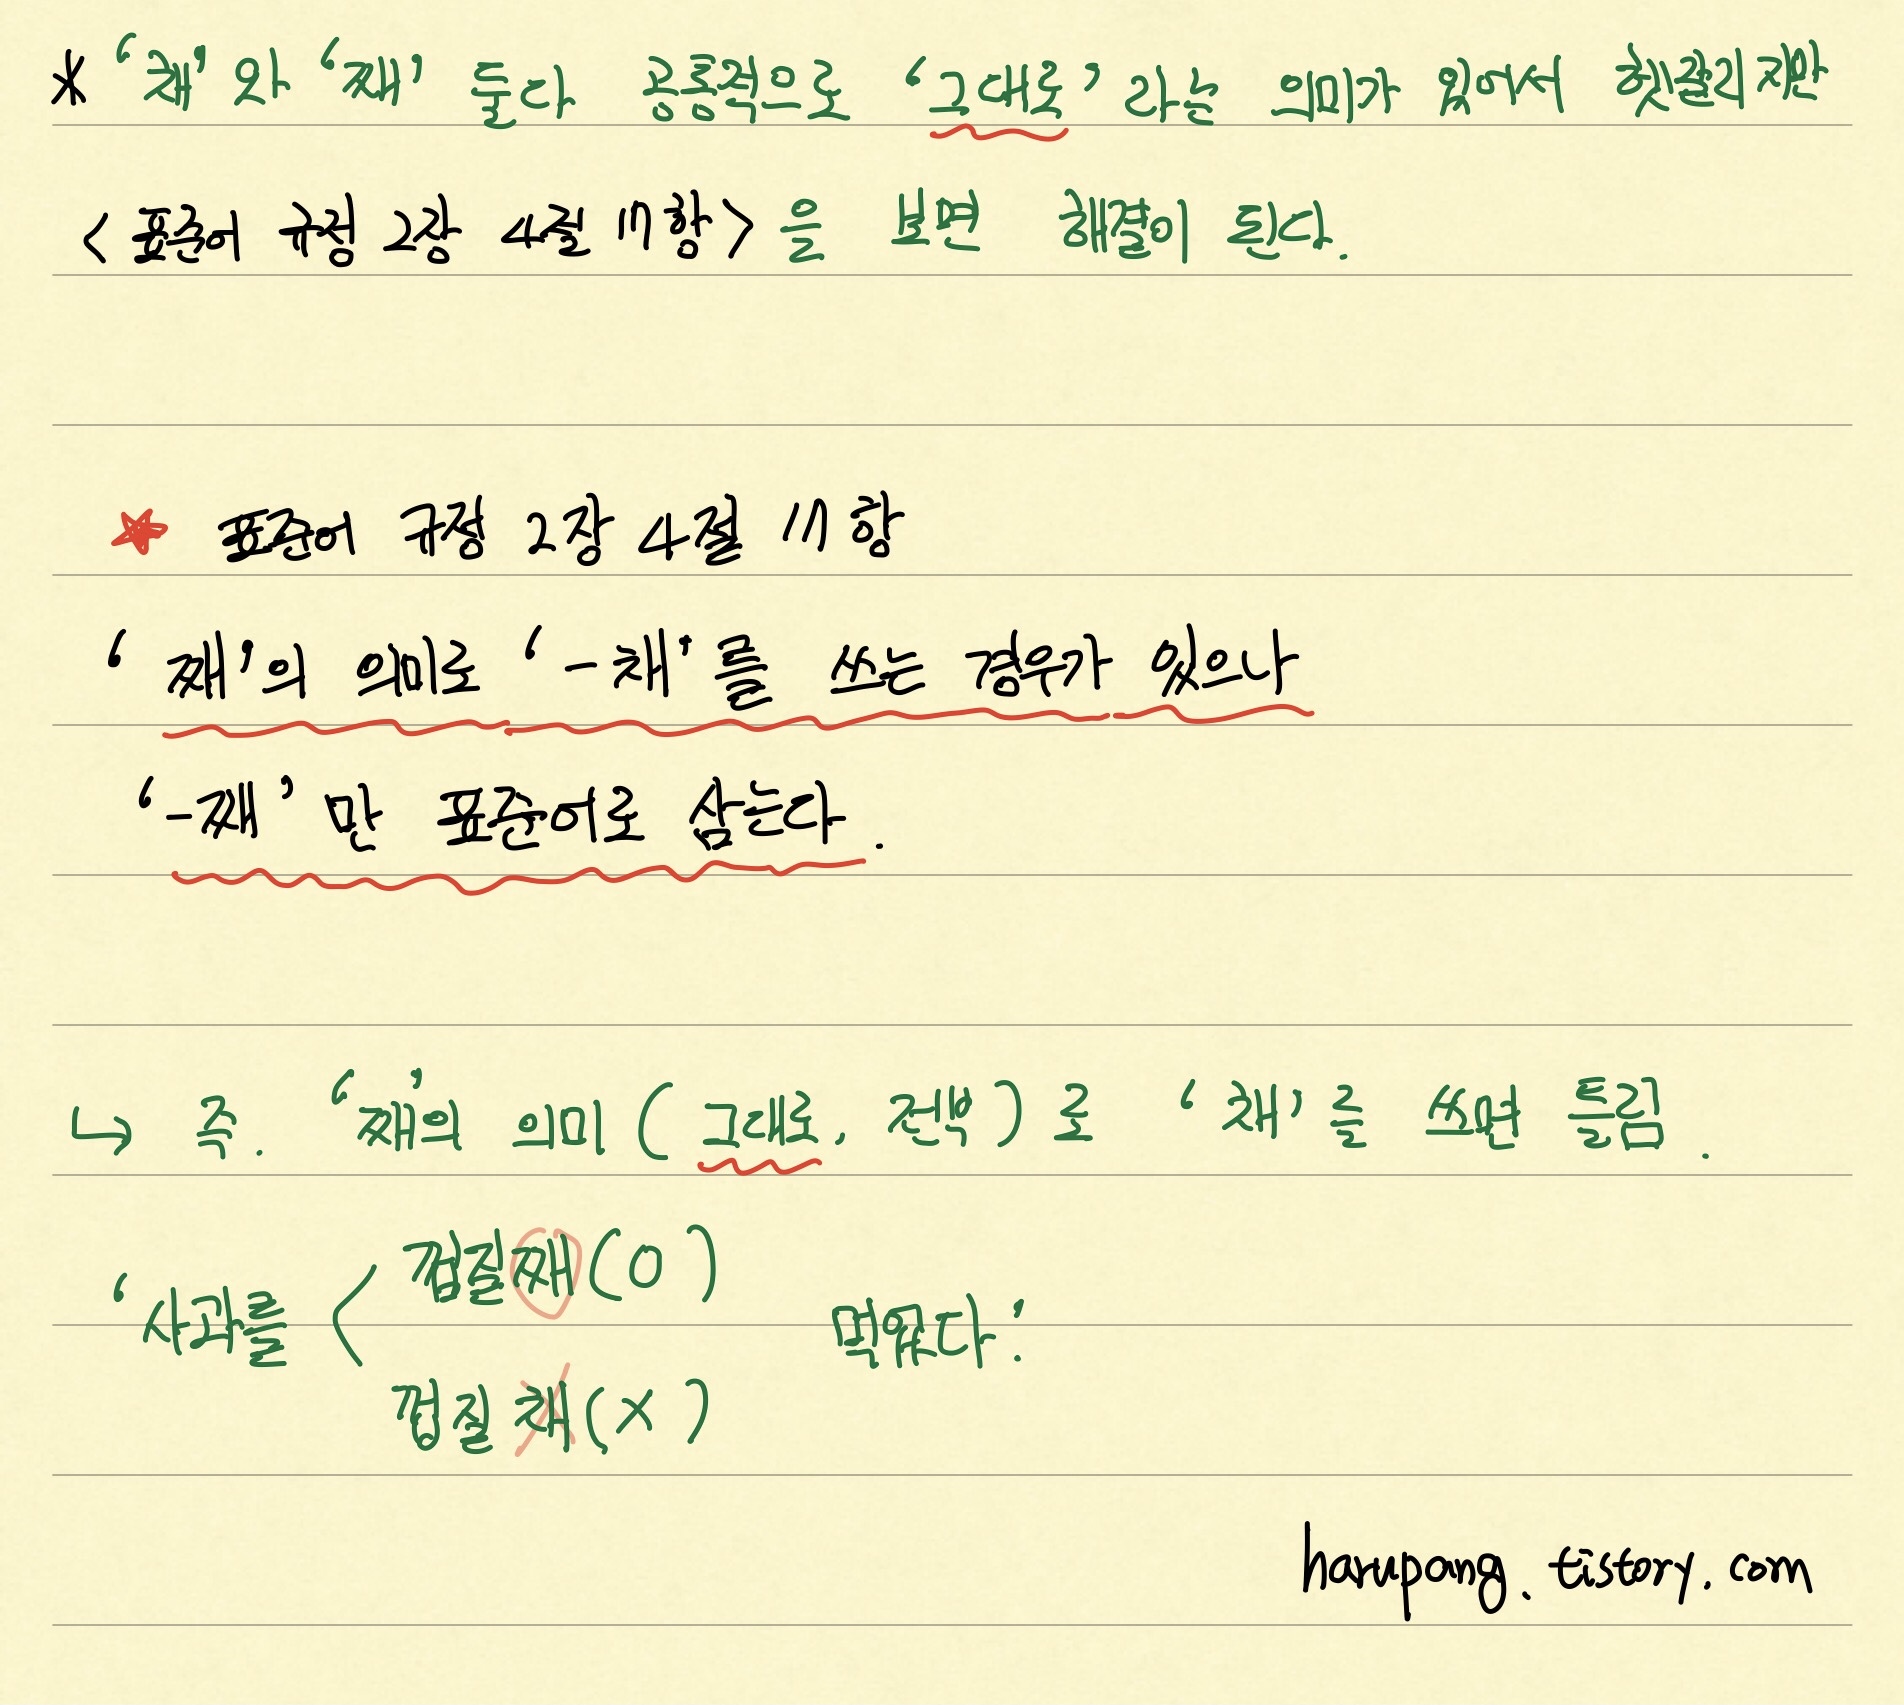 * '채'와 '째' 둘다 공통적으로 '그대로' 라는 의미가 있어서 헷갈리지만
<표준어 규정 2장 4절 17항>을 보면 해결이 된다.
★ 표준어 규정 2장 4절 17항
'째'의 의미로 '-채'를 쓰는 경우가 있으나
'-째'만 표준어로 삼는다.
↳ 즉. '째'의 의미(그대로, 전부)로 '채'를 쓰면 틀림.
껍질째(O)
'사과를 < 먹었다.'
껍질 채(X)
harupang.tistory.com